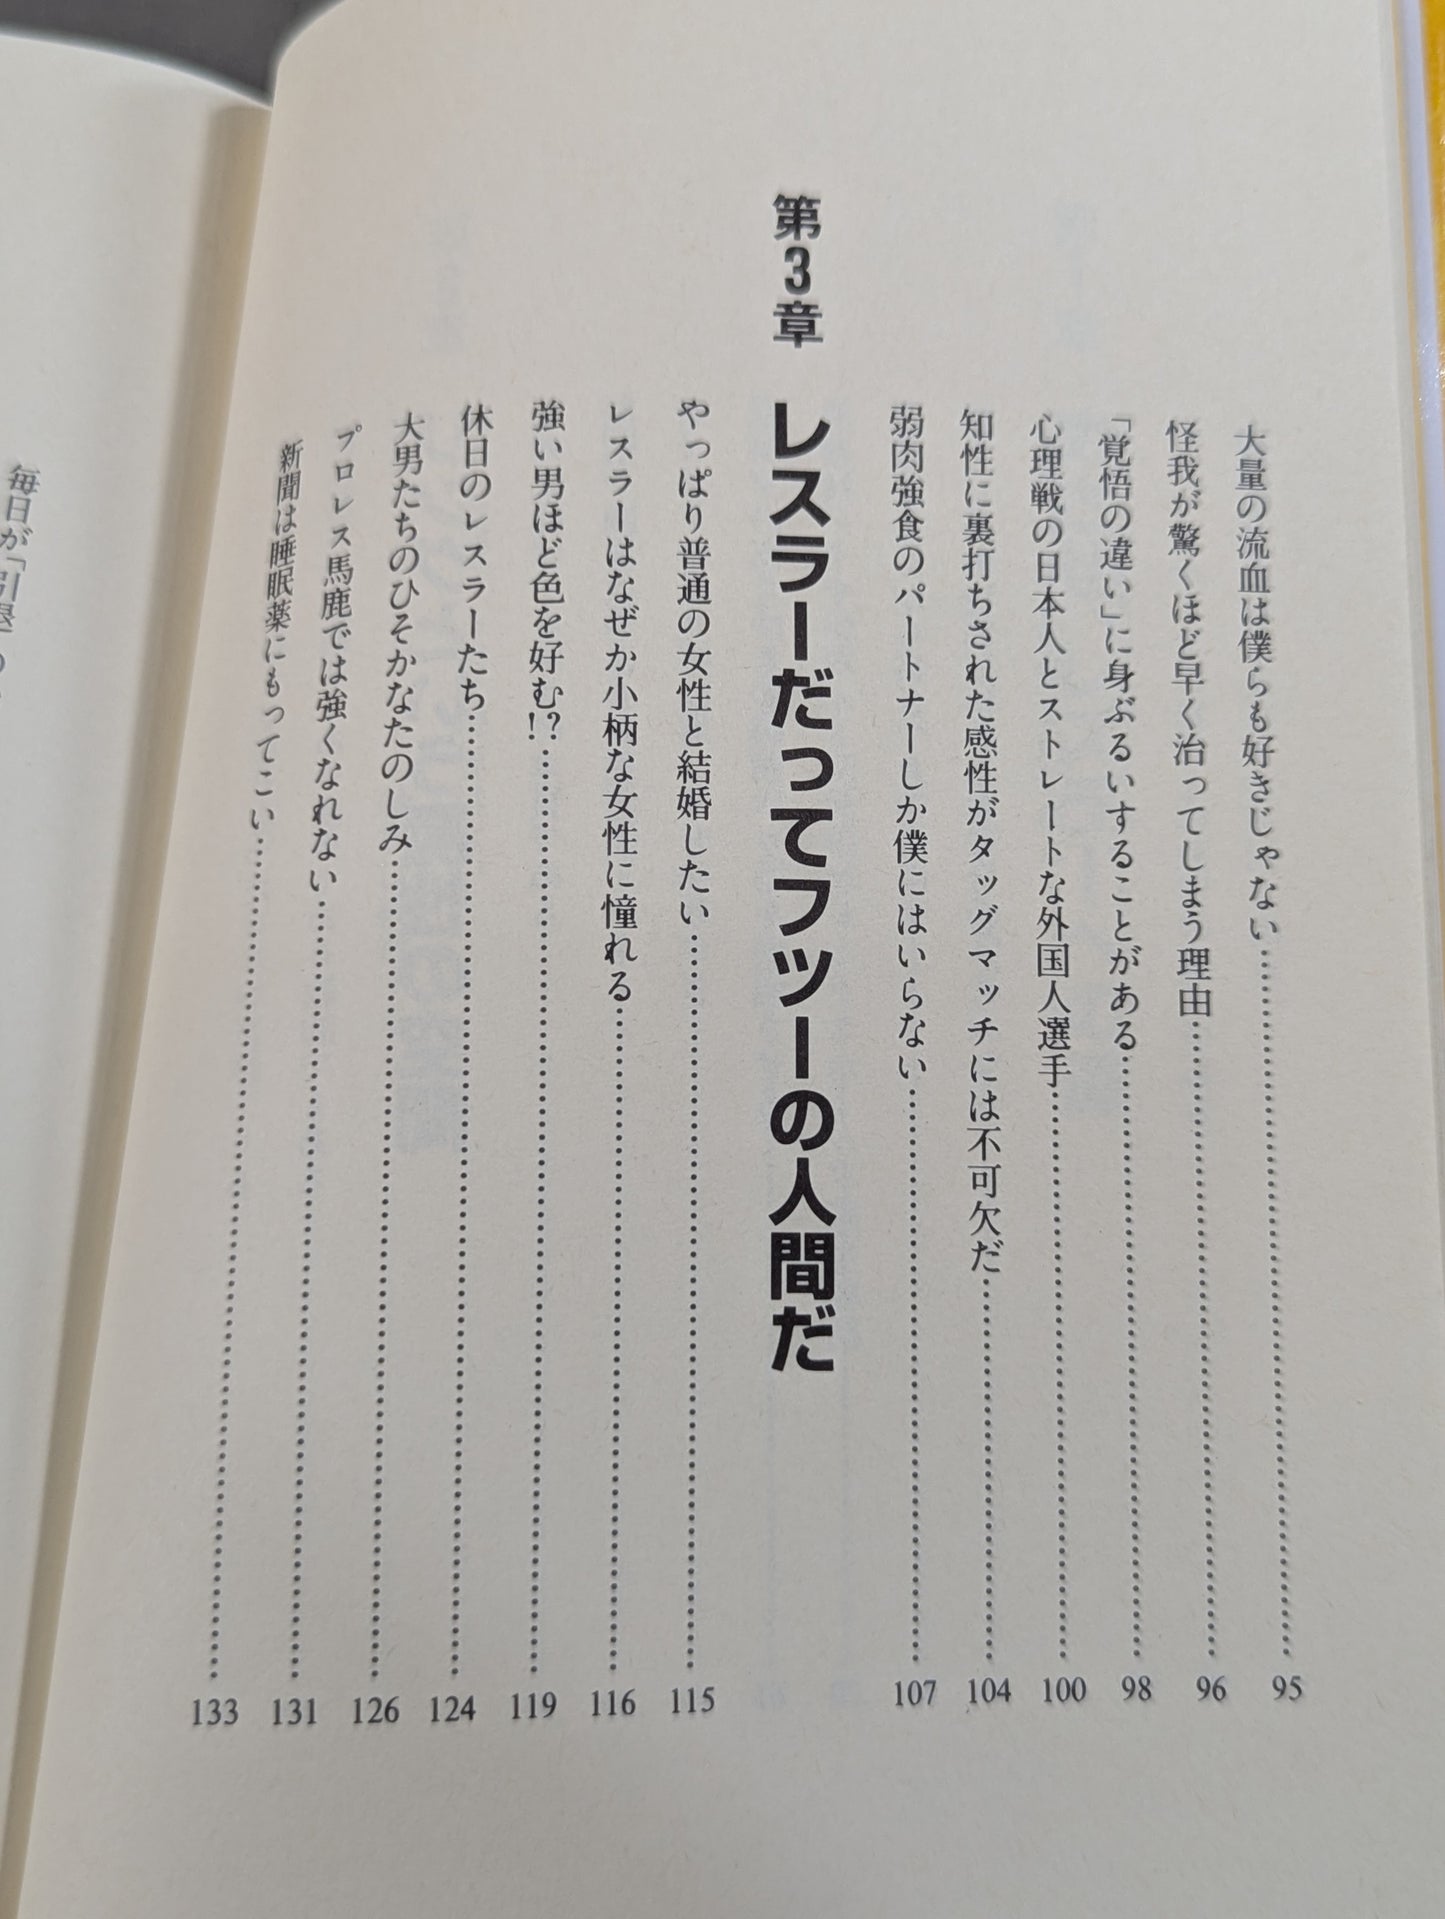 大量の流血は僕らも好きじゃない……………………95
怪我が驚くほど早く治ってしまう理由……………………96
「覚悟の違い」に身ぶるいすることがある……………………98
心理戦の日本人とストレートな外国人選手……………………100
知性に裏打ちされた感性がタッグマッチには不可欠だ……………………104
弱肉強食のパートナーしか僕にはいらない……………………107
第3章 レスラーだってフツーの人間だ
やっぱり普通の女性と結婚したい……………………115
レスラーはなぜか小柄な女性に憧れる……………………116
強い男ほど色を好む!?……………………119
休日のレスラーたち……………………124
大男たちのひそかなたのしみ……………………126
プロレス馬鹿では強くなれない……………………131
新聞は睡眠薬にもってこい……………………133
毎日が「引退」の